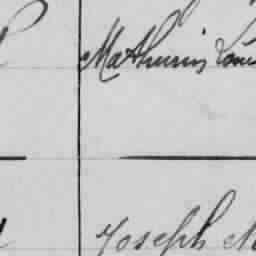 Mathurin Loui
Joseph M